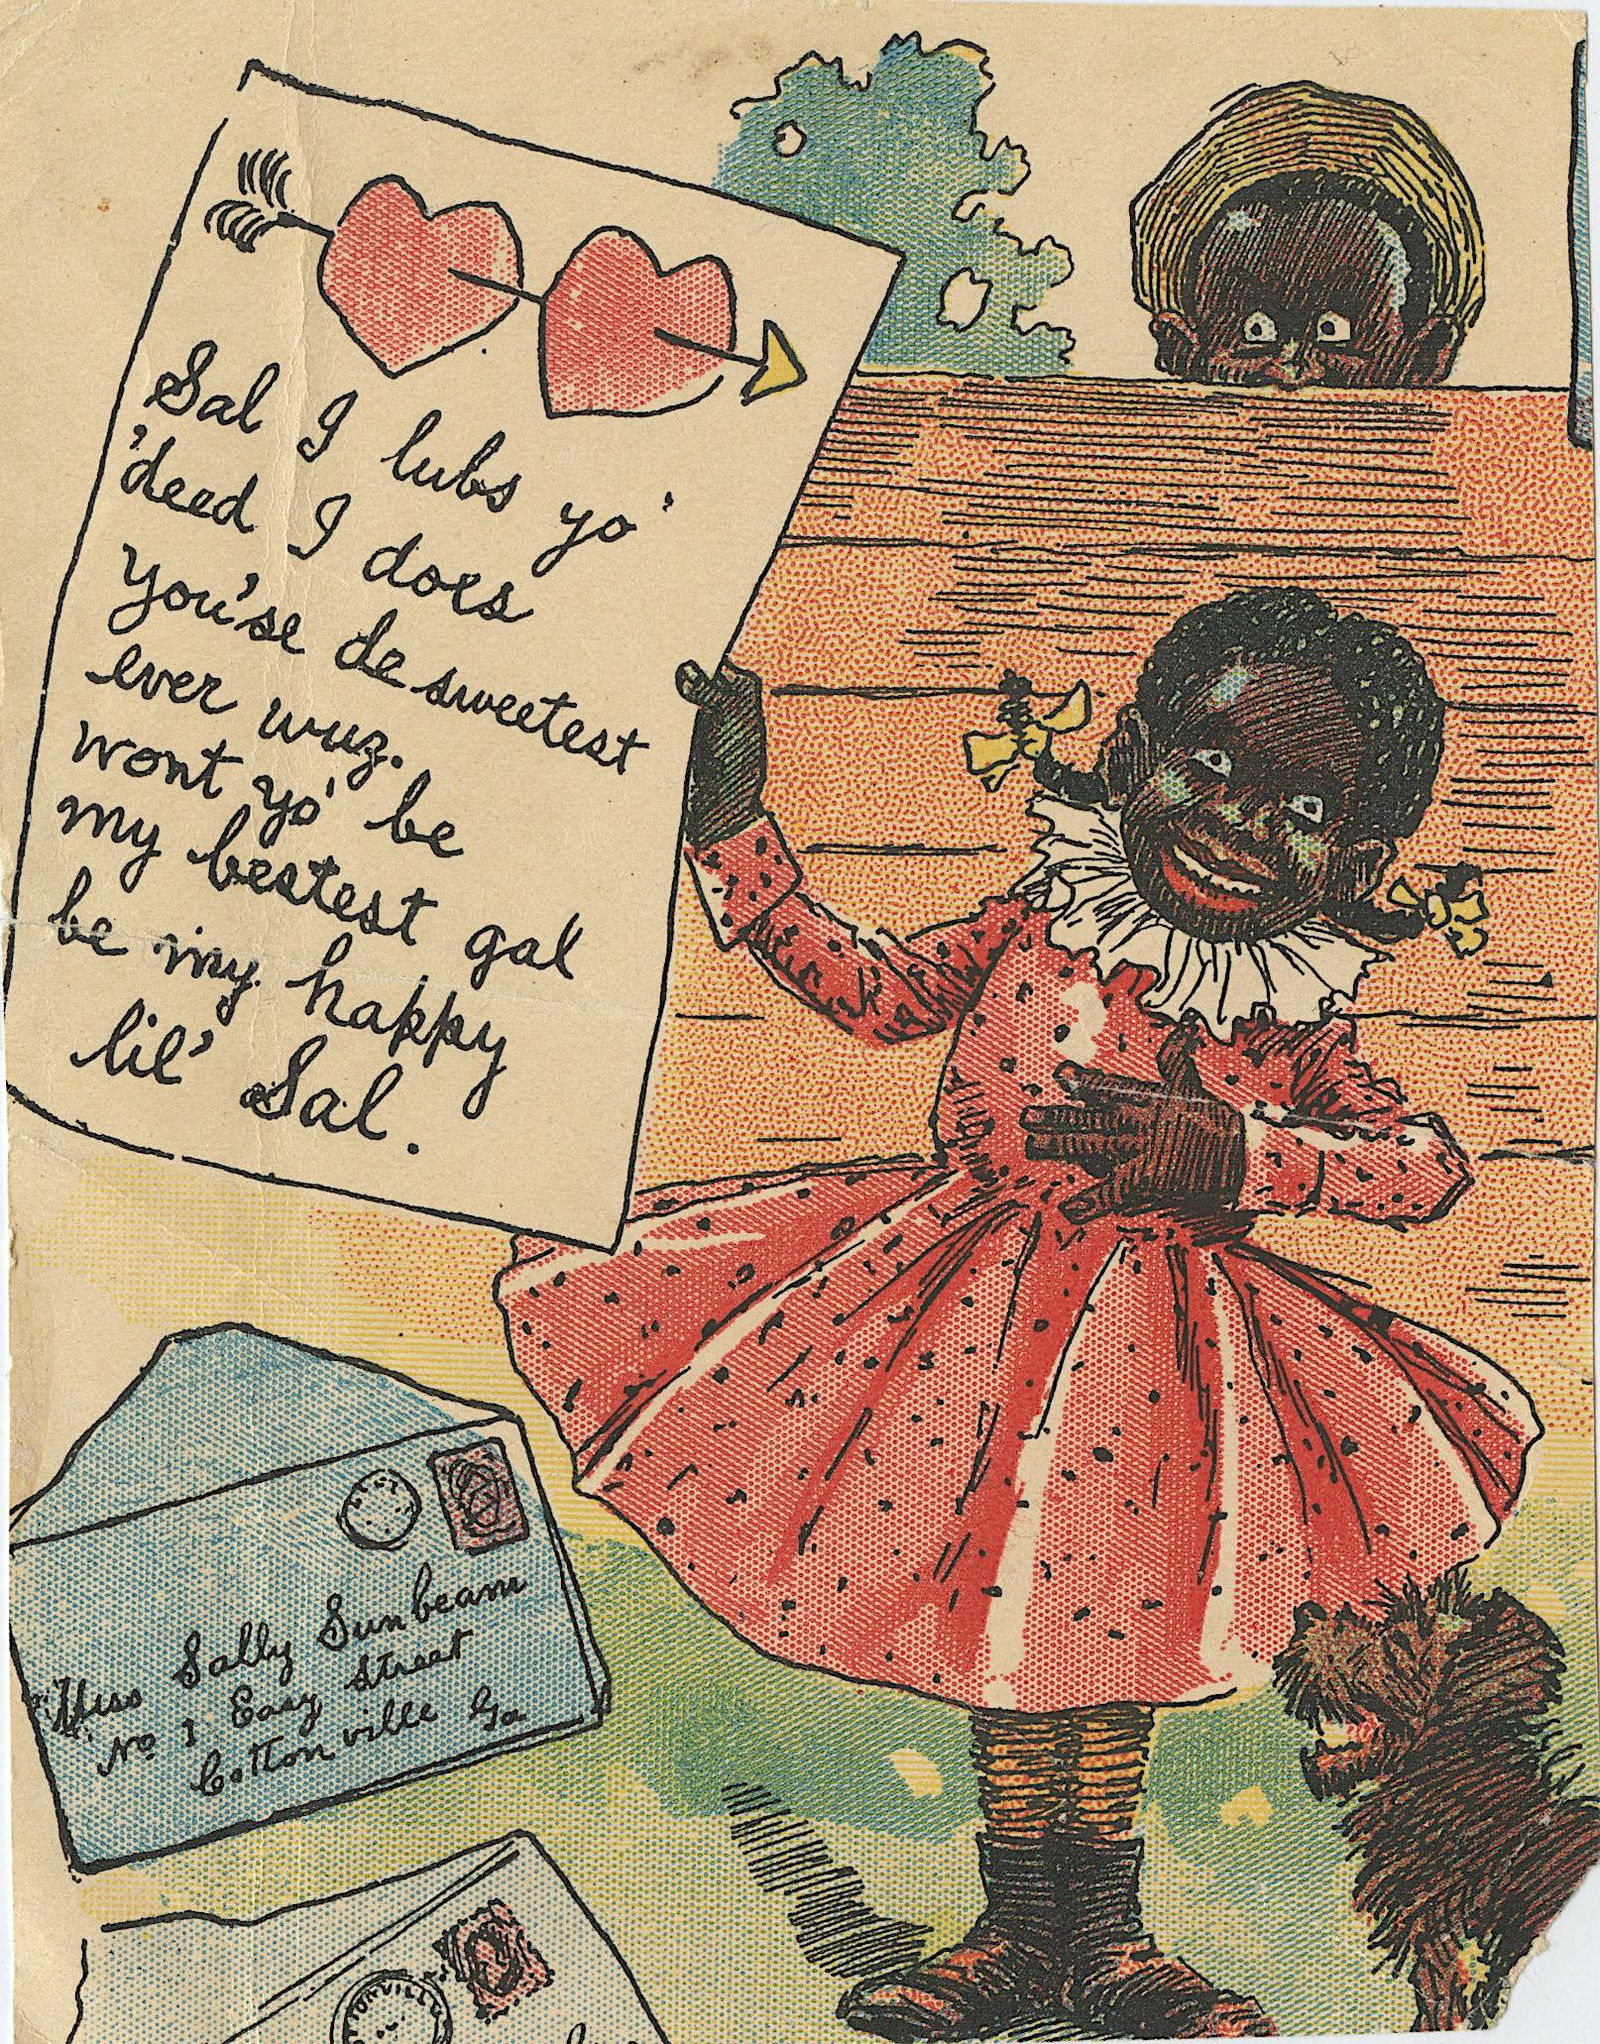 Sal I lubs yo'
'deed I does
You'se de sweetest
ever wuz.
wont yo' be
my bestest gal
be my happy
lil' Sal.
Miss Sally Sunbeam
No 1 Easy Street
Cottonville Ga